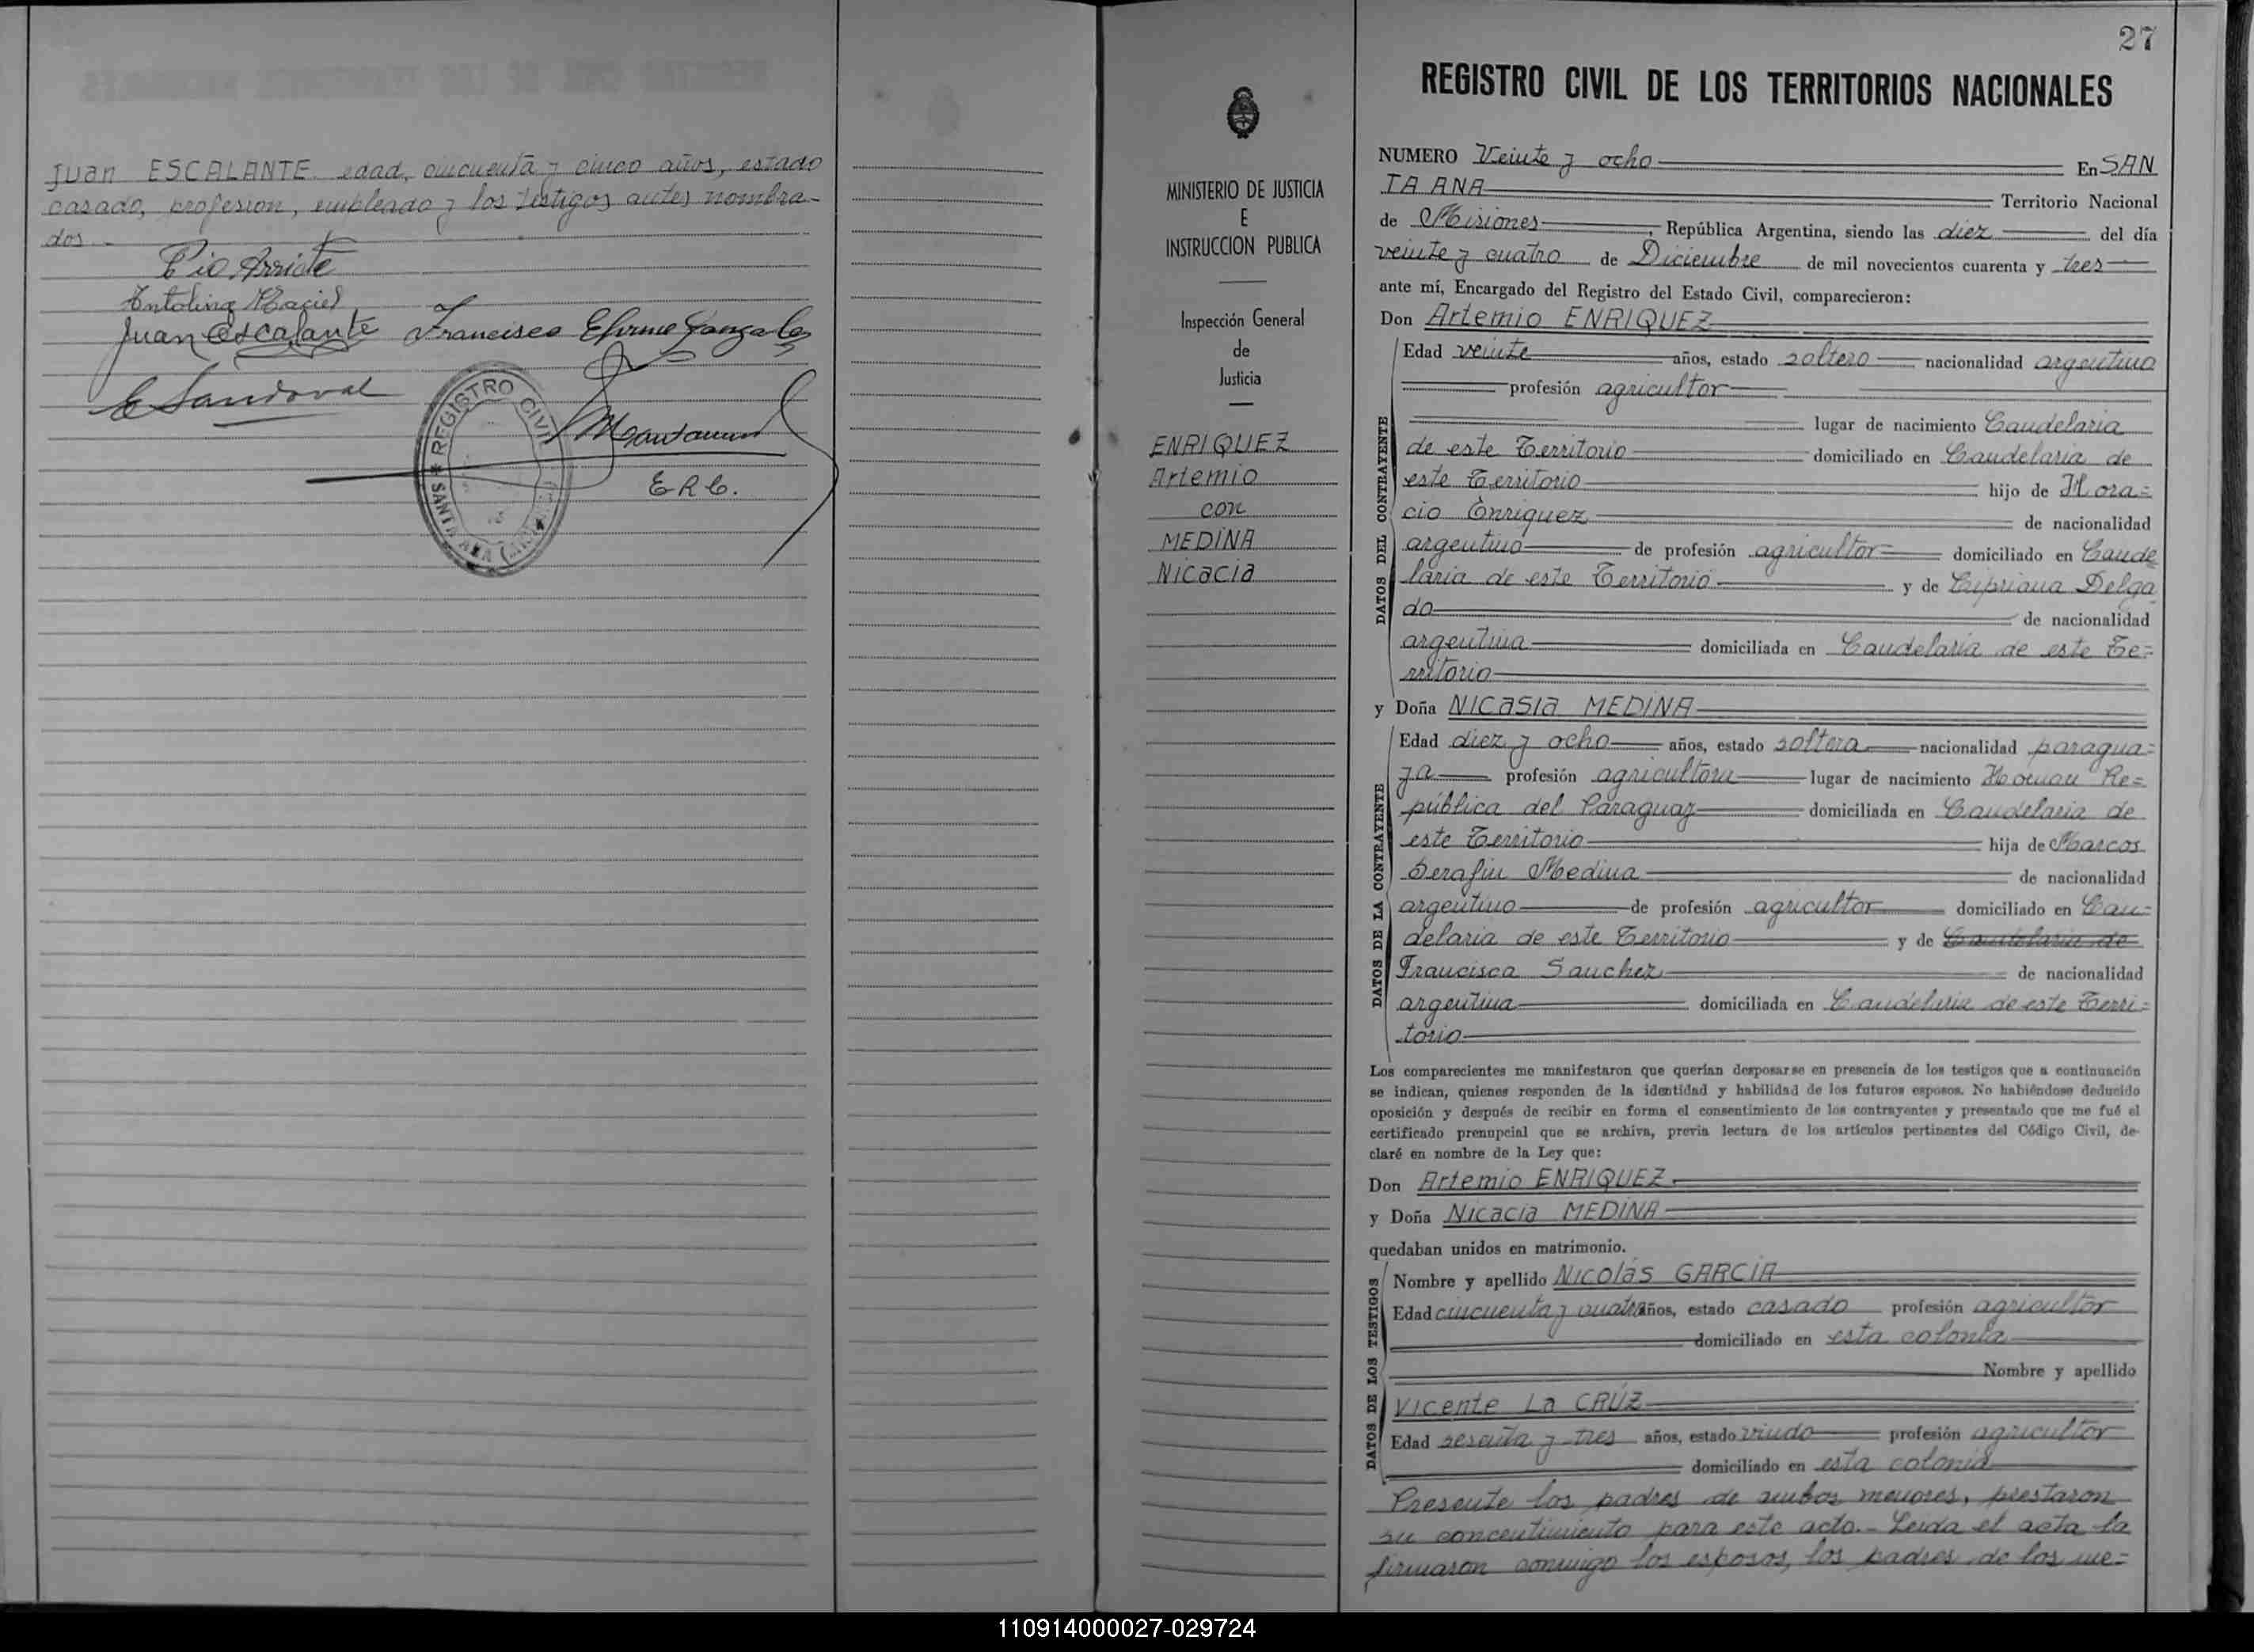 Juan ESCALANTE edad, cincuenta y cinco años, estado
casado, profesion, empleado y los testigos antes nombra-
dos.-
Pio Arriete
Antolina Maciel
Juan Escalante Francisco Gonzalez
E Sandoval
REGISTRO CIVIL
SANTA ANA
E R C.
MINISTERIO DE JUSTICIA
E
INSTRUCCION PUBLICA
Inspección General
de
Justicia
ENRIQUEZ
Artemio
con
MEDINA
Nicacia
27
REGISTRO CIVIL DE LOS TERRITORIOS NACIONALES
NUMERO Veinte y ocho En SAN
TA ANA Territorio Nacional
de Misiones, República Argentina, siendo las diez del día
veinte y cuatro de Diciembre de mil novecientos cuarenta y tres
ante mí, Encargado del Registro del Estado Civil, comparecieron:
Don Artemio ENRIQUEZ
DATOS DEL CONTRAYENTE
Edad veinte años, estado soltero nacionalidad argentino
profesión agricultor
lugar de nacimiento Candelaria
de este Territorio domiciliado en Candelaria de
este Territorio hijo de Hora=
cio Enriquez de nacionalidad
argentino de profesión agricultor domiciliado en Cande
laria de este Territorio y de Cipriana Delga
do de nacionalidad
argentina domiciliada en Candelaria de este Te=
rritorio
y Doña NICASIA MEDINA
DATOS DE LA CONTRAYENTE
Edad diez y ocho años, estado soltera nacionalidad paragua=
ya profesión agricultora lugar de nacimiento Hoenau Re=
pública del Paraguay domiciliada en Candelaria de
este Territorio hija de Marcos
Serafin Medina de nacionalidad
argentino de profesión agricultor domiciliado en Can=
delaria de este Territorio y de Candelaria de
Francisca Sanchez de nacionalidad
argentina domiciliada en Candelaria de este Terri=
torio
Los comparecientes me manifestaron que querían desposarse en presencia de los testigos que a continuación
se indican, quienes responden de la identidad y habilidad de los futuros esposos. No habiéndose deducido
oposición y después de recibir en forma el consentimiento de los contrayentes y presentado que me fué el
certificado prenupcial que se archiva, previa lectura de los artículos pertinentes del Código Civil, de-
claré en nombre de la Ley que:
Don Artemio ENRIQUEZ
y Doña Nicacia MEDINA
quedaban unidos en matrimonio.
DATOS DE LOS TESTIGOS
Nombre y apellido Nicolás GARCIA
Edad cincuenta y cuatro años, estado casado profesión agricultor
domiciliado en esta colonia
Nombre y apellido
Vicente La CRÚZ
Edad sesenta y tres años, estado viudo profesión agricultor
domiciliado en esta colonia
Presente los padres de ambos menores, prestaron
su concentimiento para este acto.- Leida el acta la
firmaron conmigo los esposos, los padres de los me=
110914000027-029724